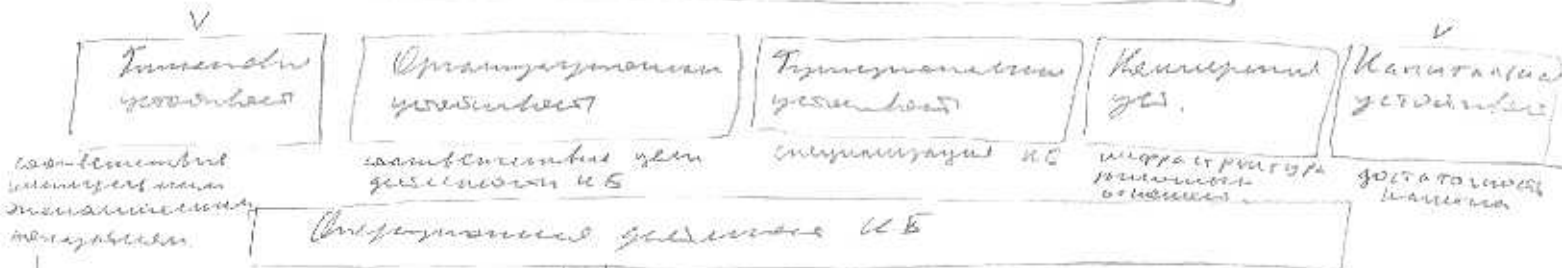 V
V
Финансовая
устойчивост
Организационная
устойчивост
Функциональн
устойчивост
Коммерческ
уст.
Капитальная
устойчивос
соответствие
экономическим
показателям
соответствие цели
деятельности КБ
специализация КБ
инфраструктура
рыночных
отношений
достаточность
капитала
Операционная деятельность КБ